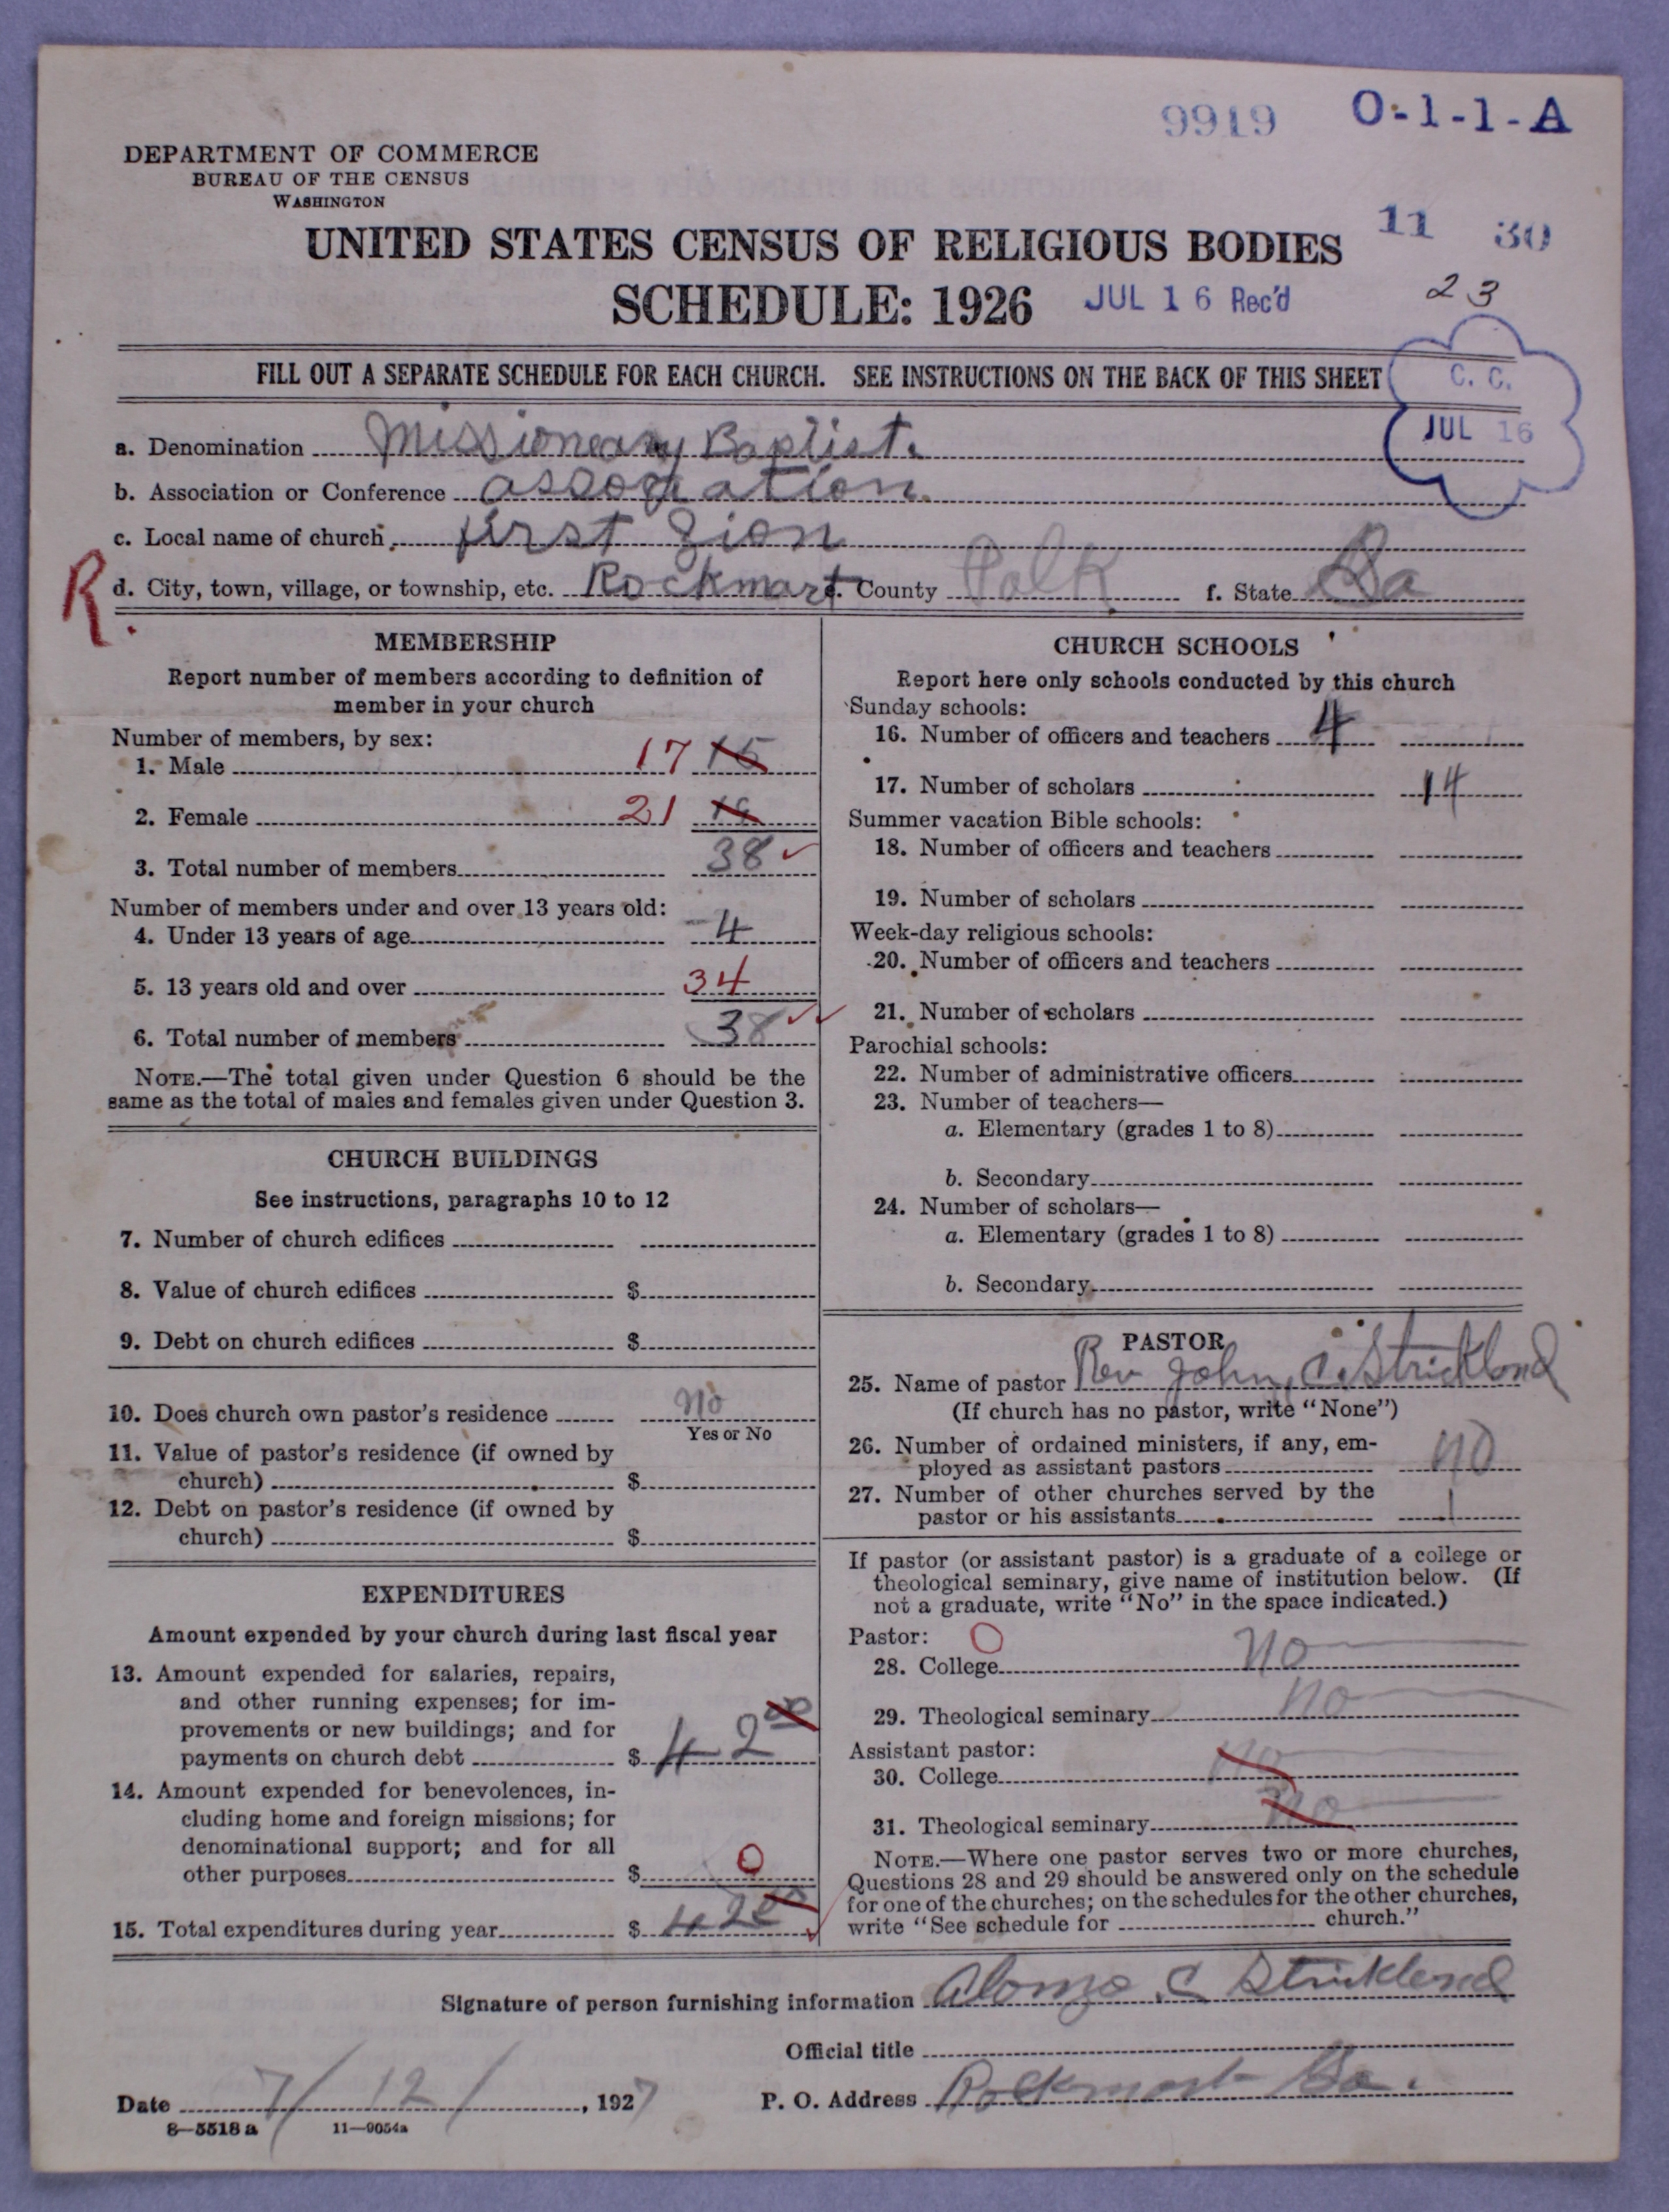 9919 O-1-1-A
DEPARTMENT OF COMMERCE
BUREAU OF THE CENSUS
WASHINGTON
11 30
UNITED STATES CENSUS OF RELIGIOUS BODIES
SCHEDULE: 1926 JUL 16 Rec'd
23
FILL OUT A SEPARATE SCHEDULE FOR EACH CHURCH. SEE INSTRUCTIONS ON THE BACK OF THIS SHEET
C. C.
JUL 16
a. Denomination Missioneary Baptist.
b. Association or Conference association.
c. Local name of church first Zion
R. d. City, town, village, or township, etc. Rockmart e. County Polk f. State Ga
MEMBERSHIP
Report number of members according to definition of
member in your church
Number of members, by sex:
1. Male 17 15
2. Female 21
3. Total number of members 38
Number of members under and over 13 years old:
4. Under 13 years of age 4
5. 13 years old and over 34
6. Total number of members 38
NOTE.—The total given under Question 6 should be the
same as the total of males and females given under Question 3.
CHURCH BUILDINGS
See instructions, paragraphs 10 to 12
7. Number of church edifices
8. Value of church edifices $
9. Debt on church edifices $
10. Does church own pastor's residence no
Yes or No
11. Value of pastor's residence (if owned by
church) $
12. Debt on pastor's residence (if owned by
church) $
EXPENDITURES
Amount expended by your church during last fiscal year
13. Amount expended for salaries, repairs,
and other running expenses; for im-
provements or new buildings; and for
payments on church debt $ 42 00
14. Amount expended for benevolences, in-
cluding home and foreign missions; for
denominational support; and for all
other purposes $ 0
15. Total expenditures during year $ 42
CHURCH SCHOOLS
Report here only schools conducted by this church
Sunday schools:
16. Number of officers and teachers 4
17. Number of scholars 14
Summer vacation Bible schools:
18. Number of officers and teachers
19. Number of scholars
Week-day religious schools:
20. Number of officers and teachers
21. Number of scholars
Parochial schools:
22. Number of administrative officers
23. Number of teachers—
a. Elementary (grades 1 to 8)
b. Secondary
24. Number of scholars—
a. Elementary (grades 1 to 8)
b. Secondary
PASTOR
25. Name of pastor Rev John, C. Strickland
(If church has no pastor, write "None")
26. Number of ordained ministers, if any, em-
ployed as assistant pastors no
27. Number of other churches served by the
pastor or his assistants 1
If pastor (or assistant pastor) is a graduate of a college or
theological seminary, give name of institution below. (If
not a graduate, write "No" in the space indicated.)
Pastor: O
28. College no
29. Theological seminary no
Assistant pastor:
30. College no
31. Theological seminary no
NOTE.—Where one pastor serves two or more churches,
Questions 28 and 29 should be answered only on the schedule
for one of the churches; on the schedules for the other churches,
write "See schedule for church."
Signature of person furnishing information Alonzo C Strickland
Official title
Date 7/12/, 1927 P. O. Address Rockmart Ga.
8—5518 a 11—9054a